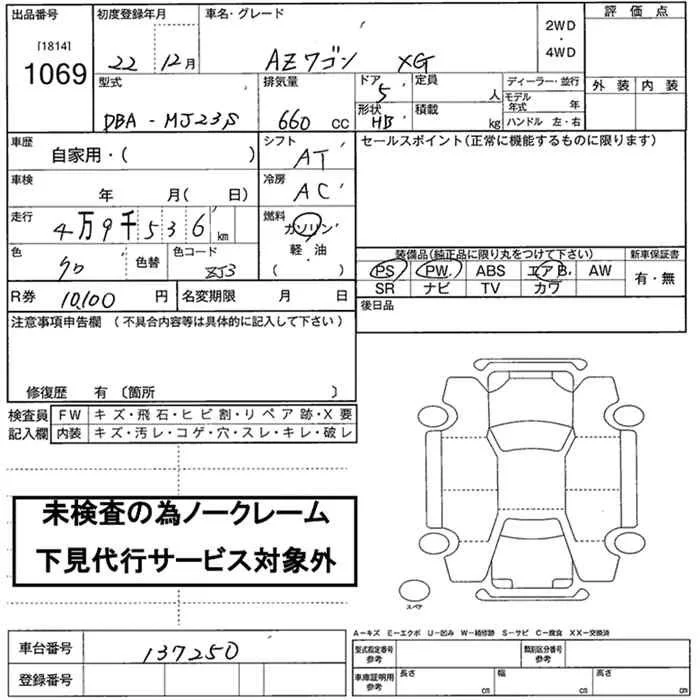 出品番号 初度登録年月 車名・グレード 2WD・4WD 評価点
[1814]
1069 22 12月 AZワゴン XG
型式 排気量 ドア 5 定員 人 ディーラー・並行 外装 内装
モデル年式 年
DBA-MJ23S 660 cc 形状 HB 積載 kg ハンドル 左・右
車歴 自家用・( ) シフト AT セールスポイント(正常に機能するものに限ります)
車検 年 月( 日) 冷房 AC
走行 4万9千536 km 燃料 ガソリン
軽・油
( )
色 クロ 色替 色コード ZJ3
装備品(純正品に限り丸をつけて下さい) 新車保証書
PS PW ABS エアB AW 有・無
SR ナビ TV カワ
R券 10,100 円 名変期限 月 日 後日品
注意事項申告欄 (不具合内容等は具体的に記入して下さい)
修復歴 有 〔箇所 〕
検査員記入欄 FW キズ・飛石・ヒビ割・リペア跡・X要
内装 キズ・汚レ・コゲ・穴・スレ・キレ・破レ
未検査の為ノークレーム
下見代行サービス対象外
スペア
A-キズ E-エクボ U-凹み W-補修跡 S-サビ C-腐食 XX-交換済
車台番号 137250 型式指定番号 参考 類別区分番号 参考
登録番号 車庫証明用 参考 長さ cm 幅 cm 高さ cm